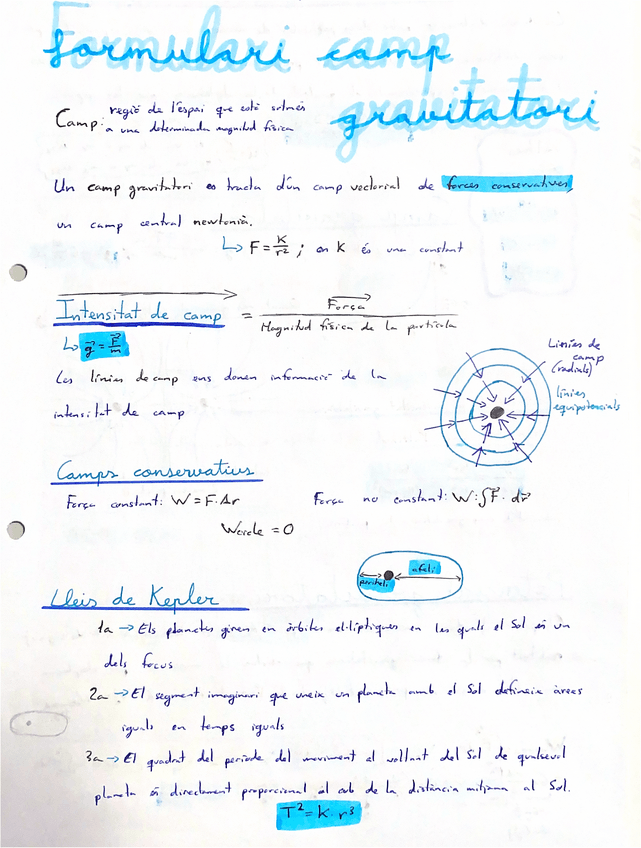 Formulari camp
gravitatori
Camp: regió de l'espai que està sotmès
a una determinada magnitud física
Un camp gravitatori es tracta d'un camp vectorial de forces conservatives,
un camp central newtonià.
↳ F = K/r² ; on K és una constant
Intensitat de camp = Força / Magnitud física de la partícula
↳ g⃗ = F⃗/m
Les línies de camp ens donen informació de la
intensitat de camp
Línies de
camp
(radials)
línies
equipotencials
Camps conservatius
Força constant: W = F·Δr
Força no constant: W: ∫F⃗·dr⃗
Wcicle = 0
periheli
afeli
Lleis de Kepler
1a → Els planetes giren en òrbites el·líptiques en les quals el Sol és un
dels focus
2a → El segment imaginari que uneix un planeta amb el Sol defineix àrees
iguals en temps iguals
3a → El quadrat del període del moviment al voltant del Sol de qualsevol
planeta és directament proporcional al cub de la distància mitjana al Sol.
T² = k·r³